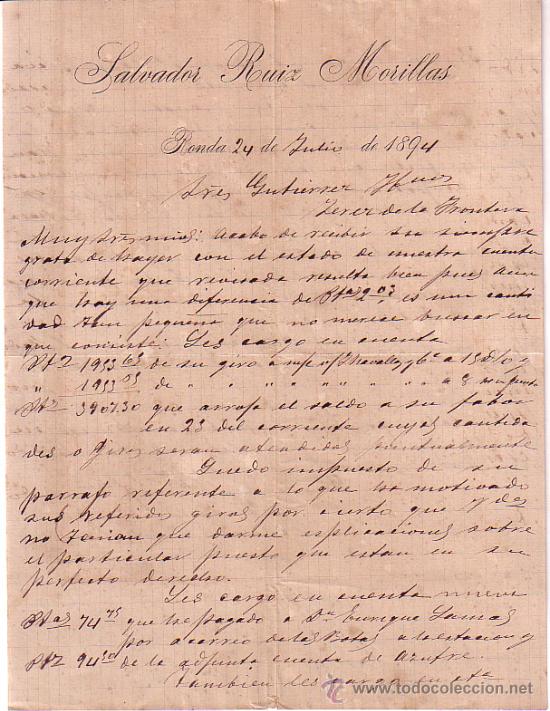 Salvador Ruiz Morillas
Ronda 24 de Julio de 1894
Sres Gutierrez Hnos
Jerez de la Frontera
Muy Sres mios: Acabo de recibir su siempre
grata de hayer con el estado de nuestra cuenta
corriente que revisada resulta bien pues aun
que hay una diferencia de Ptas 2.03 es una canti
dad tan pequeña que no merece buscar en
que consiste: Les cargo en cuenta
Ptz 1953 65 de su giro a mi a 15 d/v y
" 1953 65 de " " " " " " " a 8
Ptz 3907.30 que arroja el saldo a su fabor
en 23 del corriente cuyas cantida
des o Giros seran atendidas puntualmente
Quedo impuesto de su
parrafo referente a lo que ha motivado
sus referidos giros por cierto que Vdes
no tenian que darme esplicaciones sobre
el particular puesto que estan en su
perfecto derecho.
Les cargo en cuenta nueva
Ptas 74 75 que he pagado a Dn Enrique Lamas
por acarreo de las Botas a la estacion y
Ptz 94 50 de la adjunta cuenta de Azufre.
Tambien les cargo en cta
todocoleccion
www.todocoleccion.net